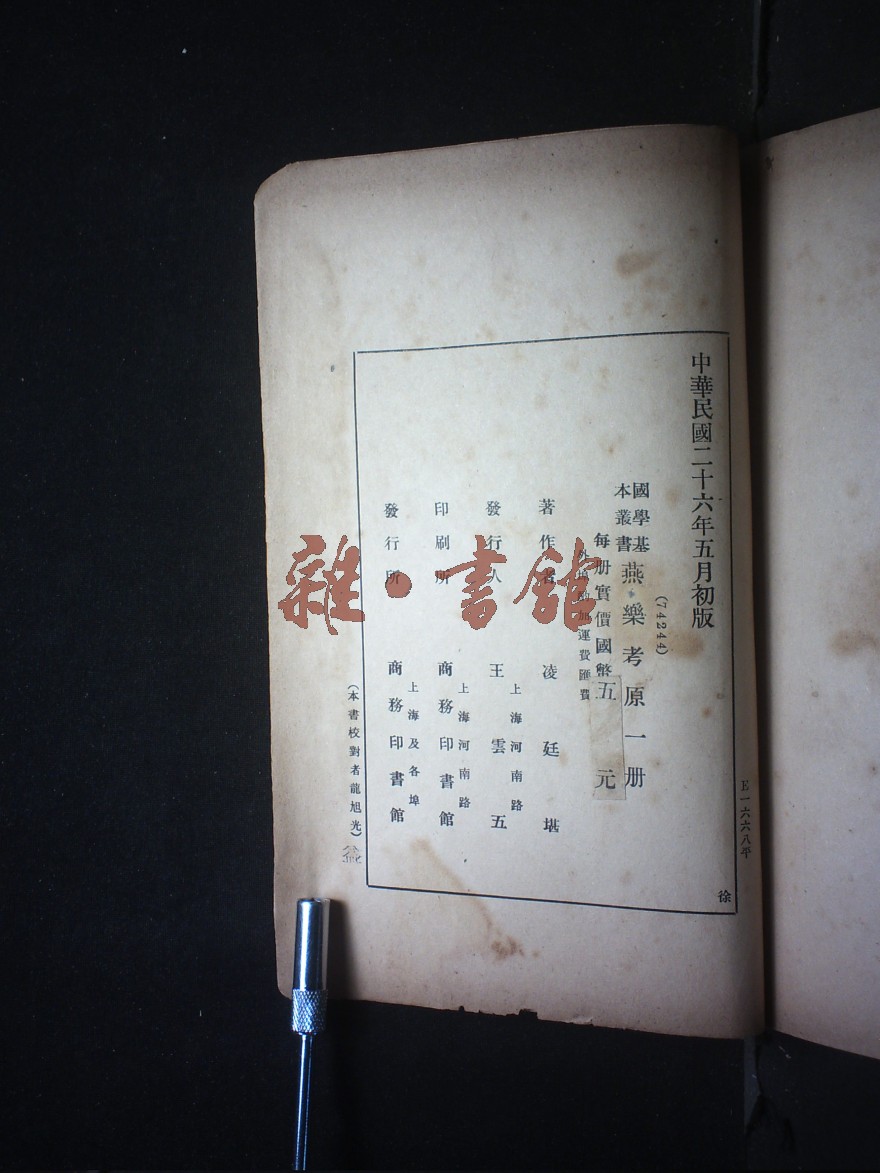 中華民國二十六年五月初版
(74244)
國學基
本叢書
燕樂考原一册
每册實價國幣五元
外埠酌加運費匯費
著作者 凌廷堪
上海河南路
發行人 王雲五
上海河南路
印刷所 商務印書館
上海及各埠
發行所 商務印書館
(本書校對者龍旭光)
E一六六八平
徐
雜·書館